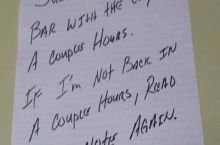 Bar with the
A couple hours.
If I'm not back in
A couple hours, read
Again.